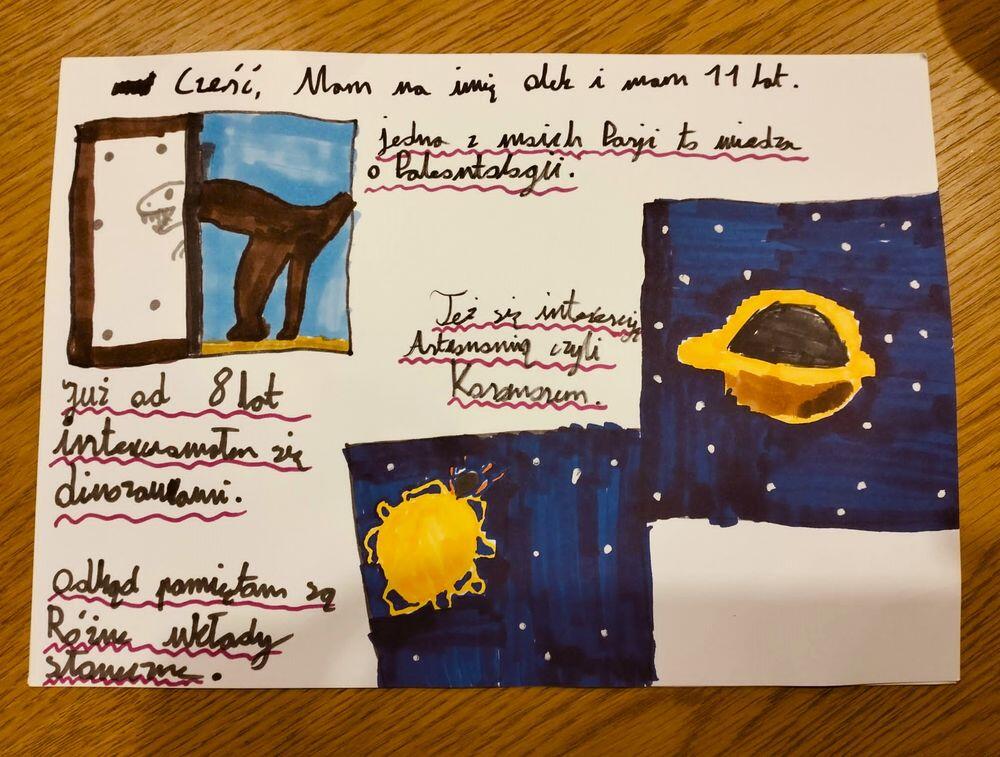 Cześć, Mam na imię Olek i mam 11 lat.
jedna z moich Pasji to wiedza
o Paleontologii.
Też się interesuję
Astronomią czyli
Kosmosem.
Już od 8 lat
interesowałem się
dinozaurami.
Odkąd pamiętam są
Różne Układy
słoneczne.